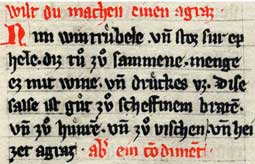 wilt du machen einen agraz.
Nim wintrubele. vn̄ stoz sur ep
hele. diz tů zů sammene. menge
ez mit wine. vn̄ drückes vz. dise
salse ist gůt zů scheffinem braten.
vn̄ zů hůnre. vn̄ zů vischen. vn̄ hei
zet agraz. ab ein cōdimēt.